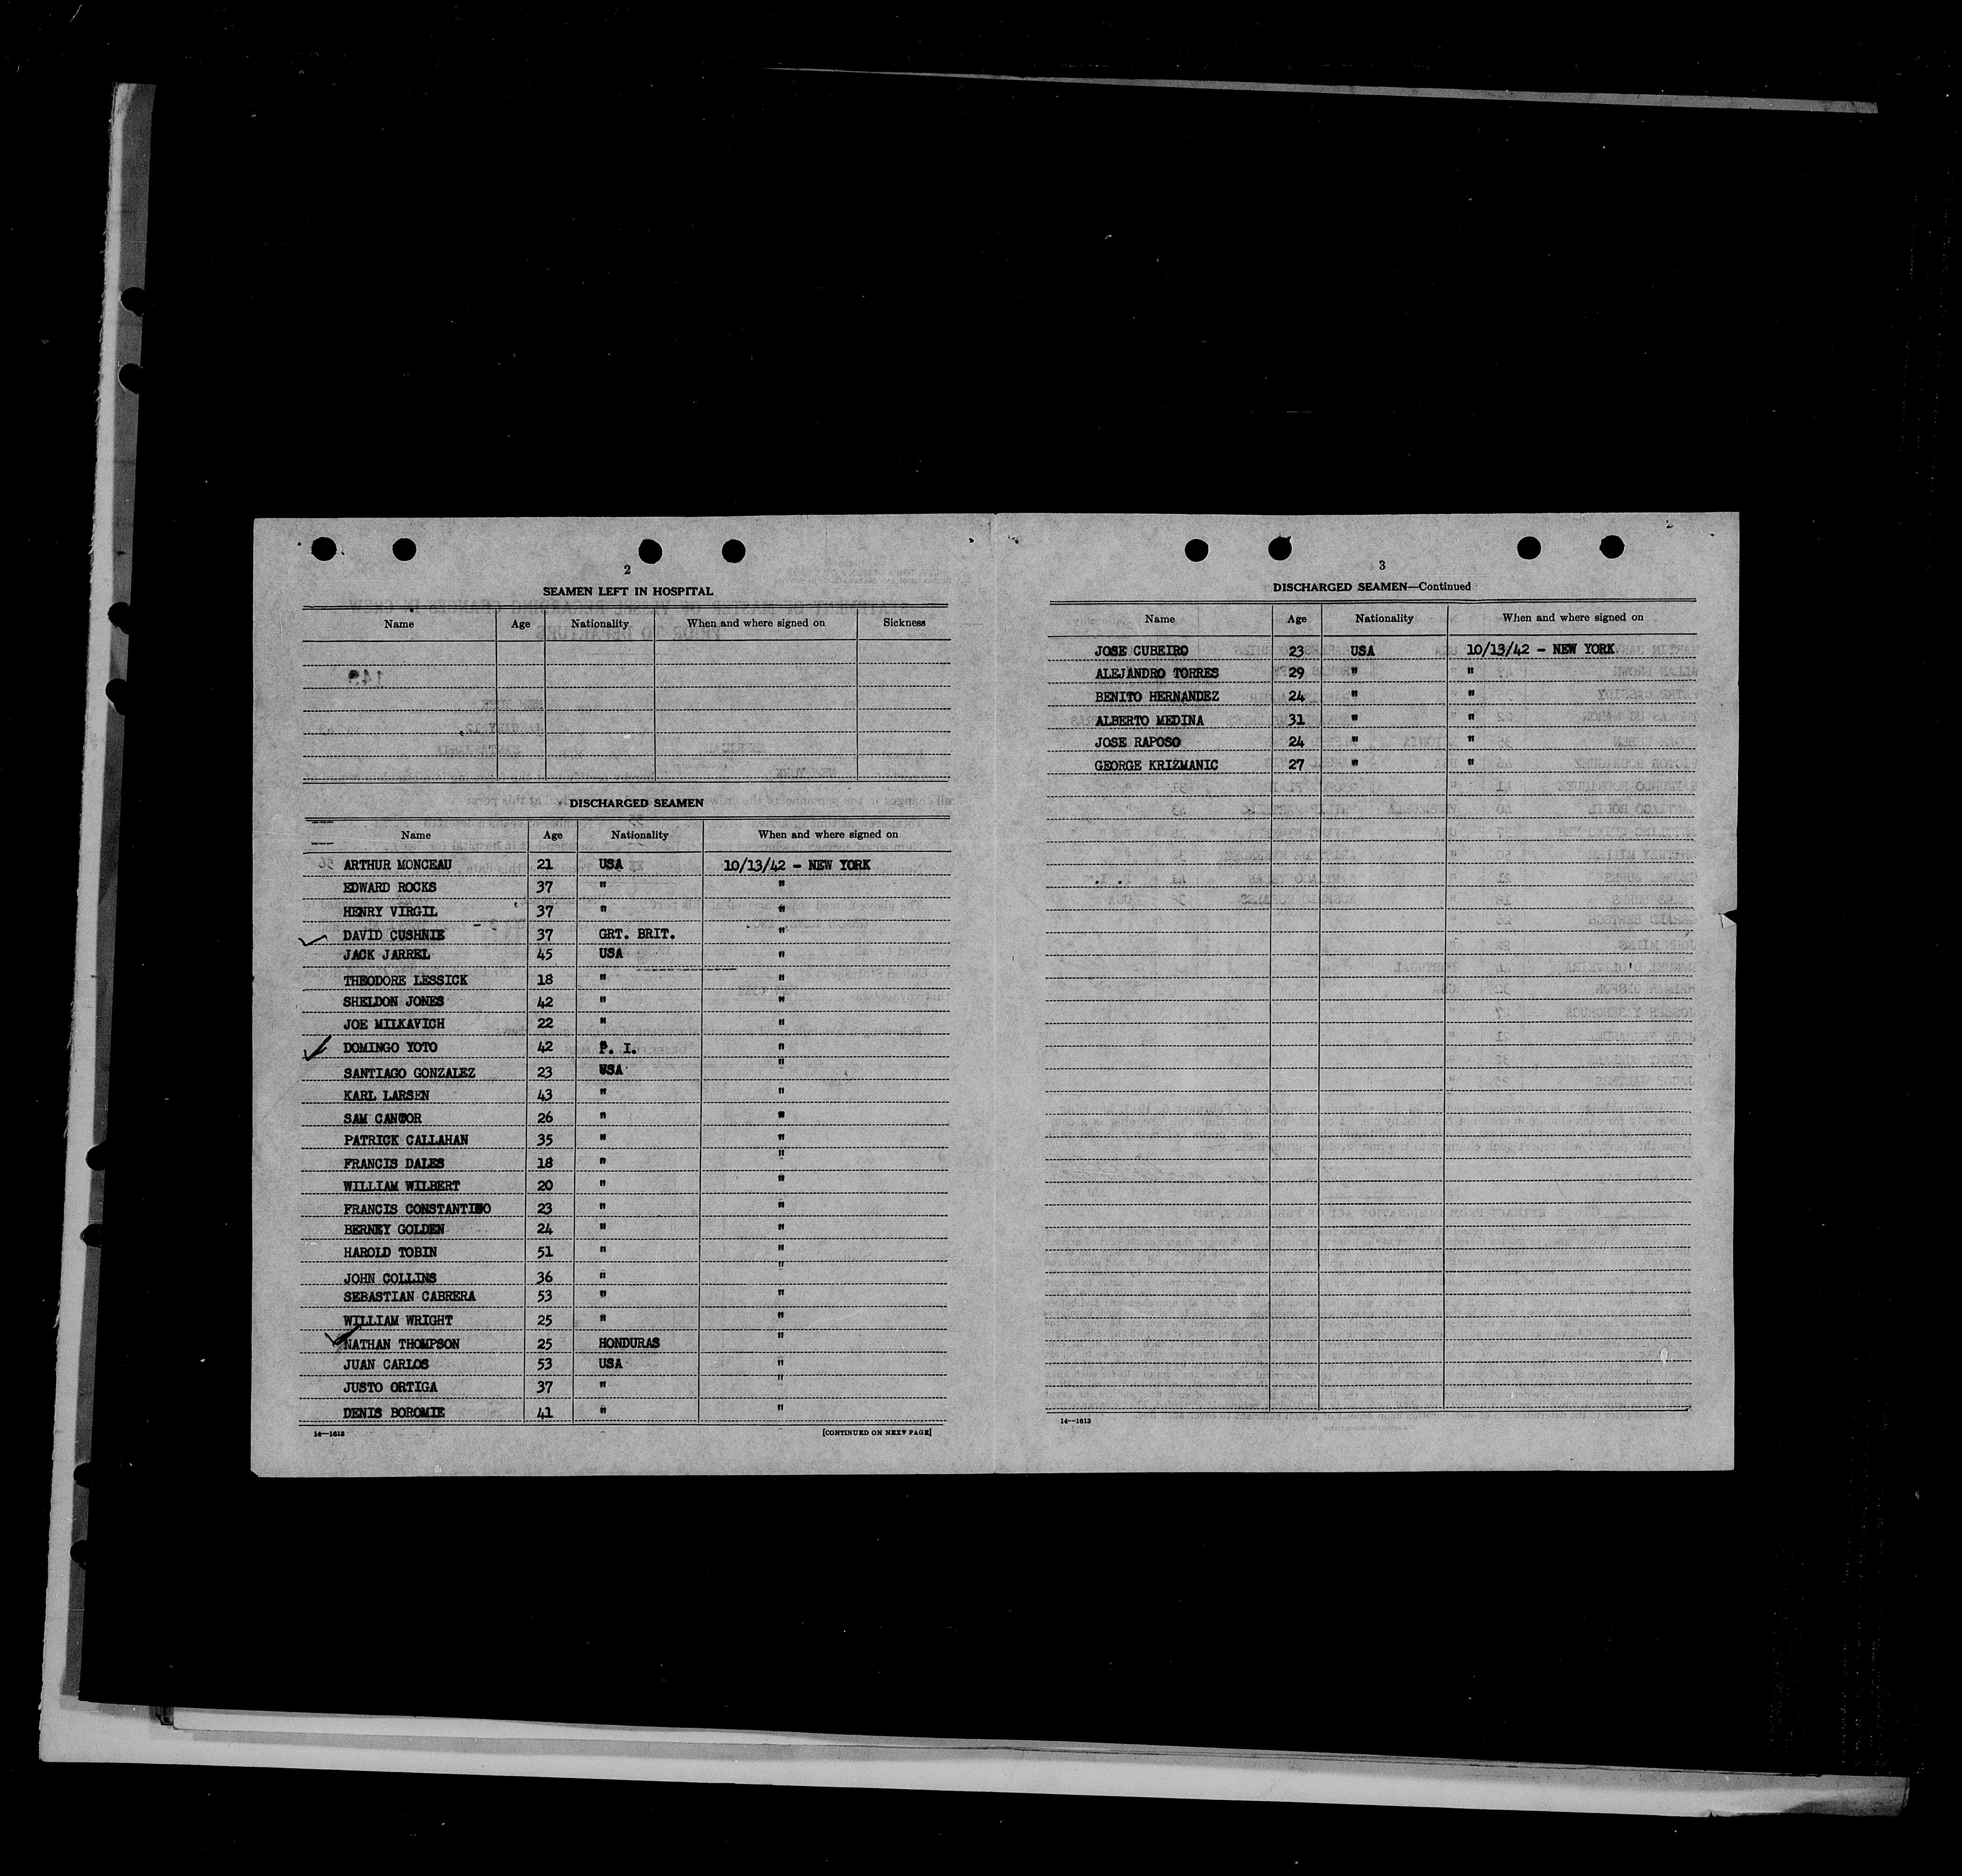 2
SEAMEN LEFT IN HOSPITAL
Name Age Nationality When and where signed on Sickness
DISCHARGED SEAMEN
Name Age Nationality When and where signed on
ARTHUR MONCEAU 21 USA 10/13/42 - NEW YORK
EDWARD ROCKS 37 " "
HENRY VIRGIL 37 " "
DAVID CUSHNIE 37 GRT. BRIT. "
JACK JARREL 45 USA "
THEODORE LESSICK 18 " "
SHELDON JONES 42 " "
JOE MILKAVICH 22 " "
DOMINGO YOTO 42 P. I. "
SANTIAGO GONZALEZ 23 USA "
KARL LARSEN 43 " "
SAM CANTOR 26 " "
PATRICK CALLAHAN 35 " "
FRANCIS DALES 18 " "
WILLIAM WILBERT 20 " "
FRANCIS CONSTANTINO 23 " "
BERNEY GOLDEN 24 " "
HAROLD TOBIN 51 " "
JOHN COLLINS 36 " "
SEBASTIAN CABRERA 53 " "
WILLIAM WRIGHT 25 " "
NATHAN THOMPSON 25 HONDURAS "
JUAN CARLOS 53 USA "
JUSTO ORTIGA 37 " "
DENIS BOROMIE 41 " "
14—1613 [CONTINUED ON NEXT PAGE]
3
DISCHARGED SEAMEN—Continued
Name Age Nationality When and where signed on
JOSE CUBEIRO 23 USA 10/13/42 - NEW YORK
ALEJANDRO TORRES 29 " "
BENITO HERNANDEZ 24 " "
ALBERTO MEDINA 31 " "
JOSE RAPOSO 24 " "
GEORGE KRIZMANIC 27 " "
14—1613